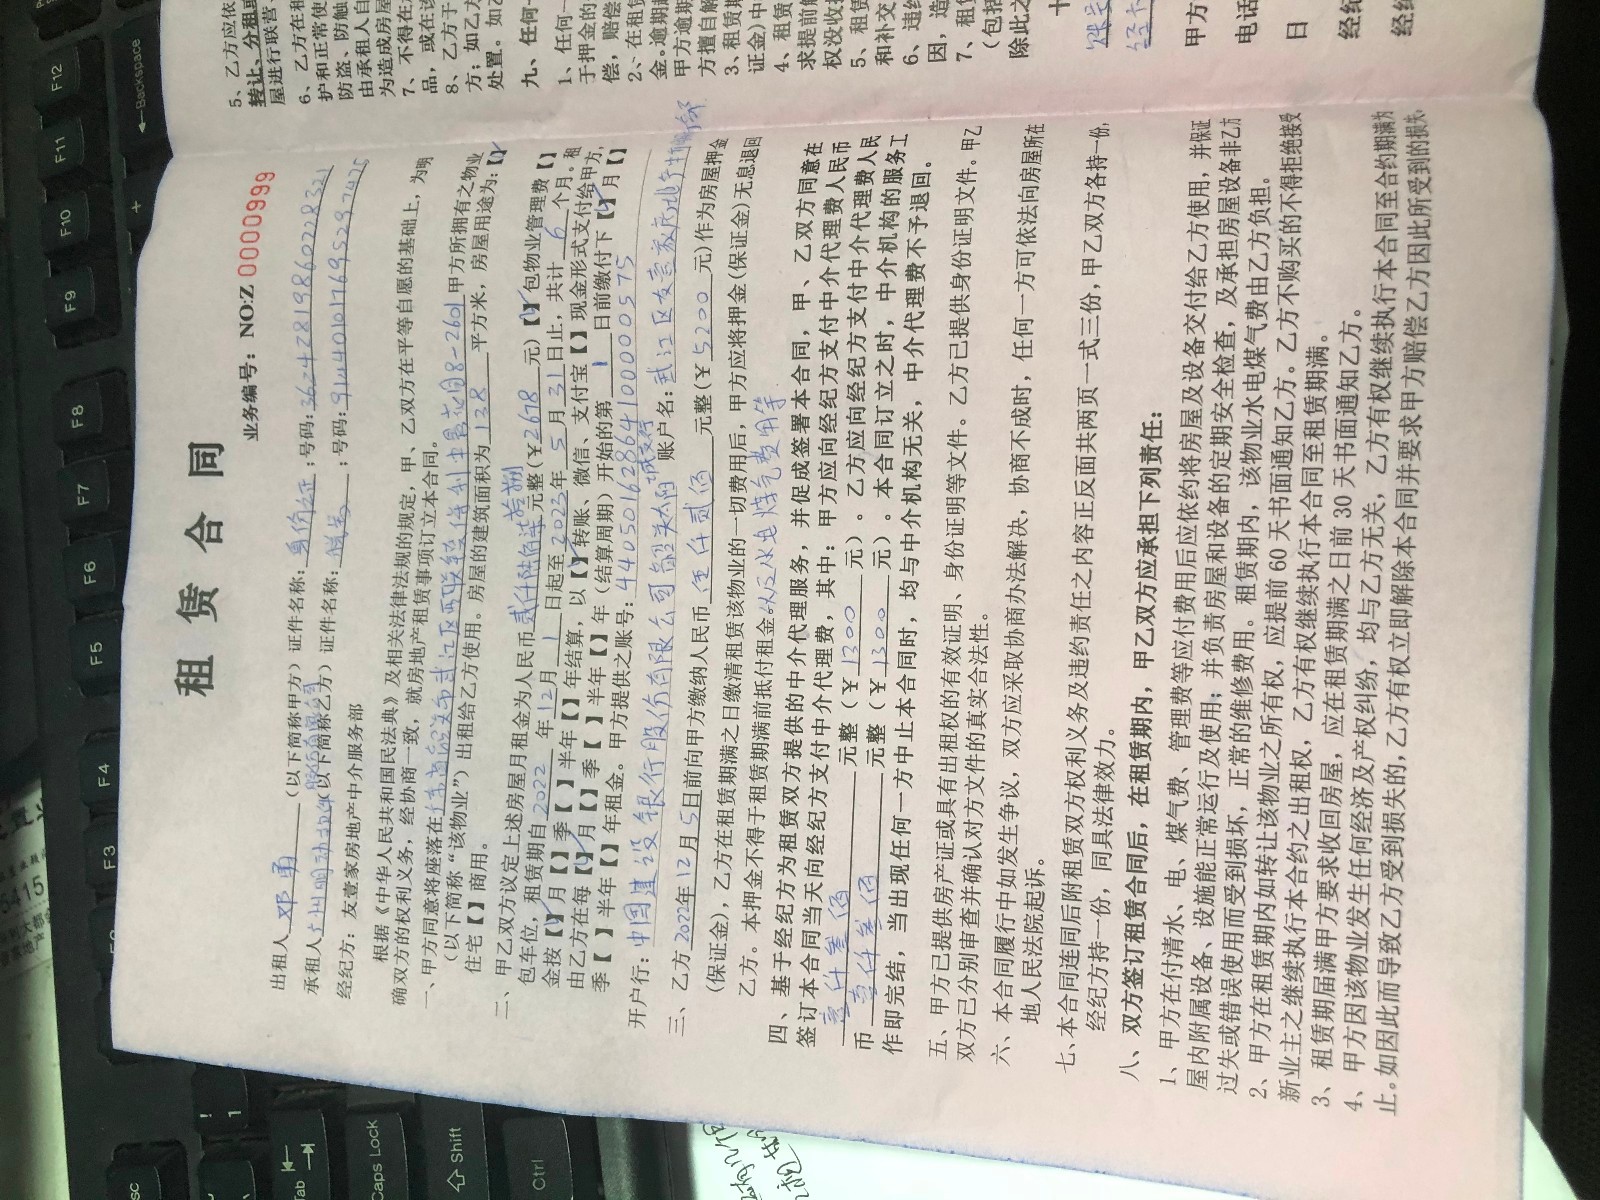 租 赁 合 同
业务编号：NO:Z 0000999
出租人 邓勇 （以下简称甲方）证件名称：身份证；号码：
承租人 （以下简称乙方）证件名称： ；号码：
经纪方：友壹家房地产中介服务部
根据《中华人民共和国民法典》及相关法律法规的规定，甲、乙双方在平等自愿的基础上，为明
确双方的权利义务，经协商一致，就房地产租赁事项订立本合同。
一、甲方同意将座落在广东省韶关市武江区 8-2601 甲方所拥有之物业
（以下简称“该物业”）出租给乙方使用。房屋的建筑面积为 138 平方米，房屋用途为：【√】
住宅【 】商用。
二、甲乙双方议定上述房屋月租金为人民币 贰仟陆佰柒拾捌 元整(￥2678 元)【√】包物业管理费【 】
包车位，租赁期自 2022 年 12 月 1 日起至 2023 年 5 月 31 日止，共计 6 个月。租
金按【√】月【 】季【 】半年【 】年结算，以【√】转账、微信、支付宝【 】现金形式支付给甲方，
由乙方在每【√】月【 】季【 】半年【 】年（结算周期）开始的第 1 日前缴付下【√】月【 】
季【 】半年【 】年租金。甲方提供之账号：44050162864100000575
开户行：中国建设银行股份有限公司韶关 支行 账户名：武江区友壹家房地产中介服务部
三、乙方 2022 年 12 月 5 日前向甲方缴纳人民币 伍仟贰佰 元整(￥ 5200 元)作为房屋押金
(保证金)，乙方在租赁期满之日缴清租赁该物业的一切费用后，甲方应将押金(保证金)无息退回
乙方。本押金不得于租赁期满前抵付租金以及水电煤气费用等
四、基于经纪方为租赁双方提供的中介代理服务，并促成签署本合同，甲、乙双方同意在
签订本合同当天向经纪方支付中介代理费，其中：甲方应向经纪方支付中介代理费人民币
壹仟叁佰 元整（￥ 1300 元）。乙方应向经纪方支付中介代理费人民
币 壹仟叁佰 元整（￥ 1300 元）。本合同订立之时，中介机构的服务工
作即完结，当出现任何一方中止本合同时，均与中介机构无关，中介代理费不予退回。
五、甲方已提供房产证或具有出租权的有效证明、身份证明等文件。乙方已提供身份证明文件。甲乙
双方已分别审查并确认对方文件的真实合法性。
六、本合同履行中如发生争议，双方应采取协商办法解决，协商不成时，任何一方可依法向房屋所在
地人民法院起诉。
七、本合同连同后附租赁双方权利义务及违约责任之内容正反面共两页一式三份，甲乙双方各持一份，
经纪方持一份，同具法律效力。
八、双方签订租赁合同后，在租赁期内，甲乙双方应承担下列责任：
1、甲方在付清水、电、煤气费、管理费等应付费用后应依约将房屋及设备交付给乙方使用，并保证
屋内附属设备、设施能正常运行及使用；并负责房屋和设备的定期安全检查，及承担房屋设备非乙方
过失或错误使用而受到损坏，正常的维修费用。租赁期内，该物业水电煤气费由乙方负担。
2、甲方在租赁期内如转让该物业之所有权，应提前 60 天书面通知乙方。乙方不购买的不得拒绝接受
新业主之继续执行本合约之出租权，乙方有权继续执行本合同至租赁期满。
3、租赁期届满甲方要求收回房屋，应在租赁期满之日前 30 天书面通知乙方。
4、甲方因该物业发生任何经济及产权纠纷，均与乙方无关，乙方有权继续执行本合同至合约期满为
止。如因此而导致乙方受到损失的，乙方有权立即解除本合同并要求甲方赔偿乙方因此所受到的损失。
5、乙方应依
转让、分租或
屋进行联营、
6、乙方在租
护和正常使
防盗、防触
由承租人自
为造成房屋
7、不得在
品，或在该
8、乙方于
方；如乙方
处置。如乙
九、任何一
1、任何一
于押金的
偿，赔偿
2、在租赁
金，逾期
甲方逾期
方擅自解
3、租赁期
证金)中
4、租赁
求提前解
权没收
5、租赁
和补交
6、违约
因，造
7、租赁
（包括
除此之
十
甲方
电话
日
经纪
经纪
F12
Backspace
F11
F10
+
F9
F8
F7
F6
F5
F4
F3
!
1
Tab
Caps Lock
Shift
Ctrl
5415